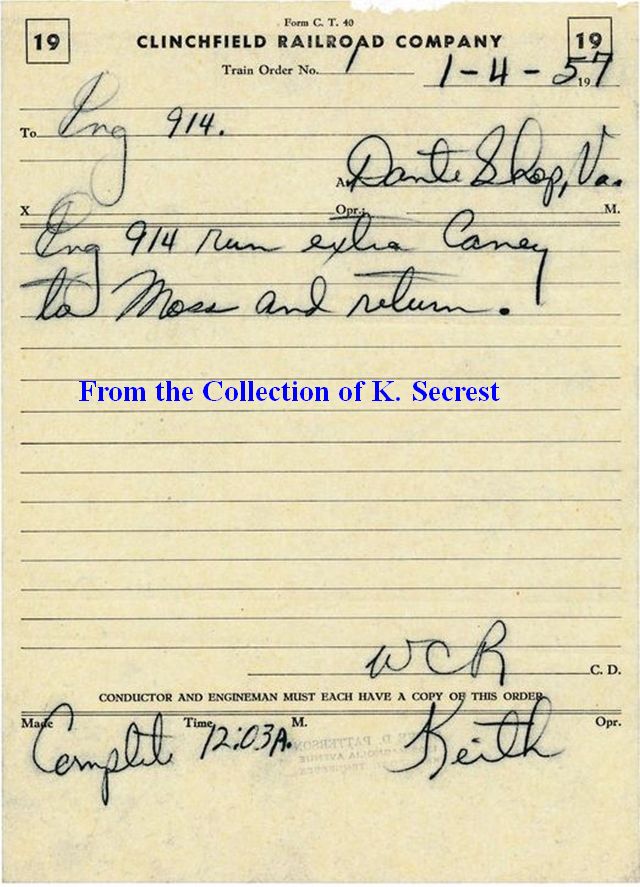 Form C. T. 40
19 CLINCHFIELD RAILROAD COMPANY 19
Train Order No. 1 1-4-1957
To Eng 914.
At Dante Shop, Va.
X Opr.; M.
Eng 914 run extra Caney
to Moss and return.
From the Collection of K. Secrest
WCR C. D.
CONDUCTOR AND ENGINEMAN MUST EACH HAVE A COPY OF THIS ORDER
Made Complete Time 12:03A. M. Keith Opr.
D. PATTERSON
AVENUE